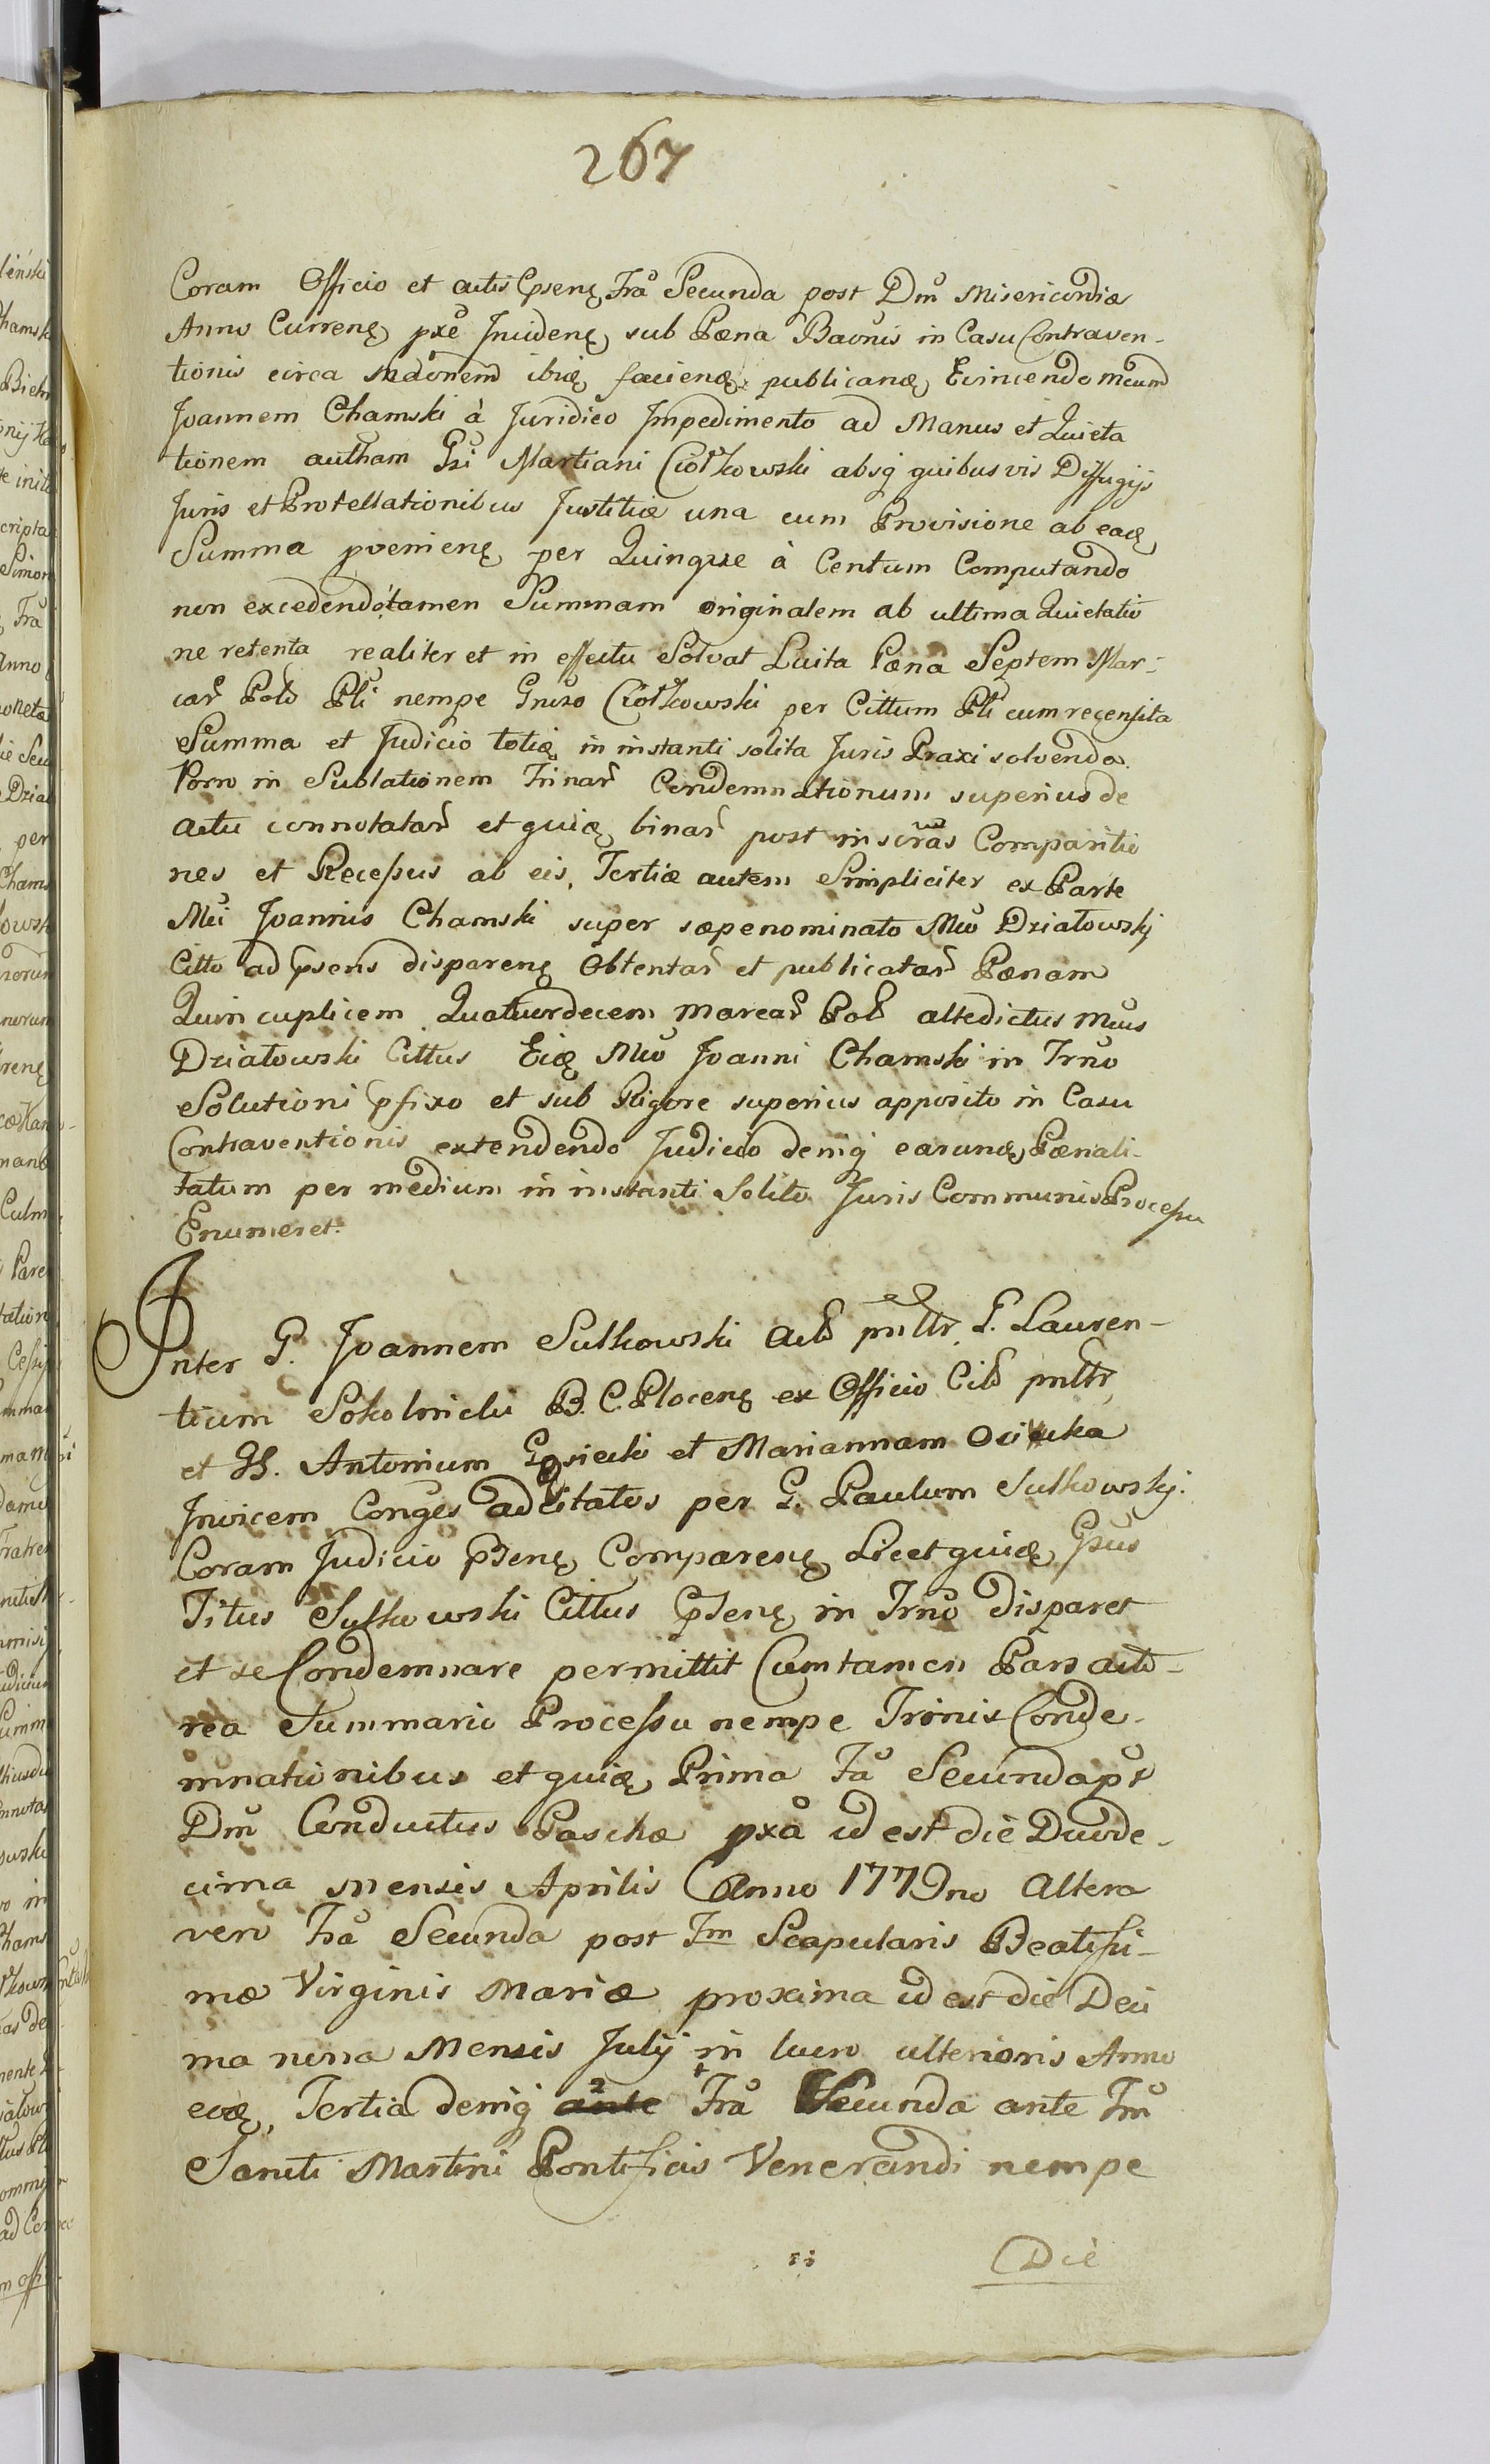 267
Coram Officio et actis Psenę Fra Secunda post Dm Misericordiæ
Anno Currenę pxe Incidenę sub Pæna Baõnis in Casu Contraven-
tionis circa ibię facienę publicanę Evincendo Mcum
Joannem Chamski à Juridico Impedimento ad Manus et Quieta
tionem autham Gsi Martiani Ciołkowski absq quibusvis Diffugijs
Juris et Protellationibus Justitiæ una cum Provisione ab eadę
Summa pvenienę per Quinque à Centum Computando
non excedendo tamen Summam originalem ab ultima Quietatio
ne retenta realiter et in effectu Solvat Luita Pæna Septem Mar-
car Pol Pli nempe Gnoso Ciołkowski per Cittum Pli cum recensita
Summa et Judicio totię in instanti solita Juris Praxi solvenda.
Porro in Sublationem Trinar Condemnationum superius de
actu connotatar et quię binar post inscras Comparitio
nes et Recessus ab eis, Tertiæ autem Simpliciter ex Parte
Mci Joannis Chamski super sæpenominato Mco Działowskj
Citto ad psens disparenę Obtentar et publicatar Pænam
Quincuplicem Quatuordecem Marcar Pol altedictus Mcus
Działowski Cittus Eię Mco Joanni Chamski in Trno
Solutioni pfixo et sub Rigore superius apposito in Casu
Contraventionis extendendo Judicio deniq earunę Pænali-
tatum per medium in instanti Solito Juris Communis Processu
Enumeret.
Inter G. Joannem Sulkowski Act pnltr G. Lauren-
tium Sokolnicki B. C. Plocenę ex Officio Cit pnltr
et GG. Antonium et Mariannam
Invicem Conges adcitatos per G. Paulum Sulkowskj.
Coram Judicio Psenę Comparenę Licet quię Gsus
Titus Sulkowski Cittus Psenę in Trno disparet
et se Condemnare permittit Cum tamen Pars acto-
rea Summario Processu nempe Trinis Conde-
mnationibus et quię Prima Fa Secunda pt
Dm Conductus Paschæ pxa id est die Duode-
cima Mensis Aprilis Anno 1779no Altera
vero Fra Secunda post Fm Scapularis Beatissi-
mæ Virginis Mariæ proxima id est die Deci
ma nona Mensis Julij in lucro ulterioris Anno
eoę, Tertia deniq ante Fra Secunda ante Fm
Sancti Martini Pontificis Venerandi nempe
Die